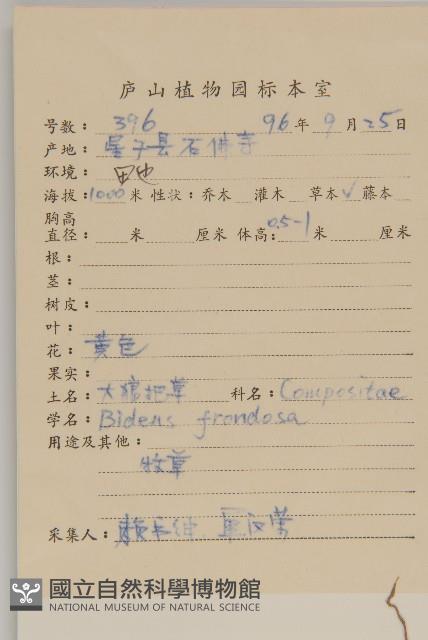 庐山植物园标本室
号数: 396 96年9月25日
产地: 星子县石佛寺
环境: 田地
海拔: 1000米 性状: 乔木 灌木 草本✓ 藤本
胸高
直径: 米 厘米 体高: 0.5-1米 厘米
根:
茎:
树皮:
叶:
花: 黄色
果实:
土名: 大狼把草 科名: Compositae
学名: Bidens frondosa
用途及其他:
牧草
采集人: 赖书绅、
國立自然科學博物館
NATIONAL MUSEUM OF NATURAL SCIENCE